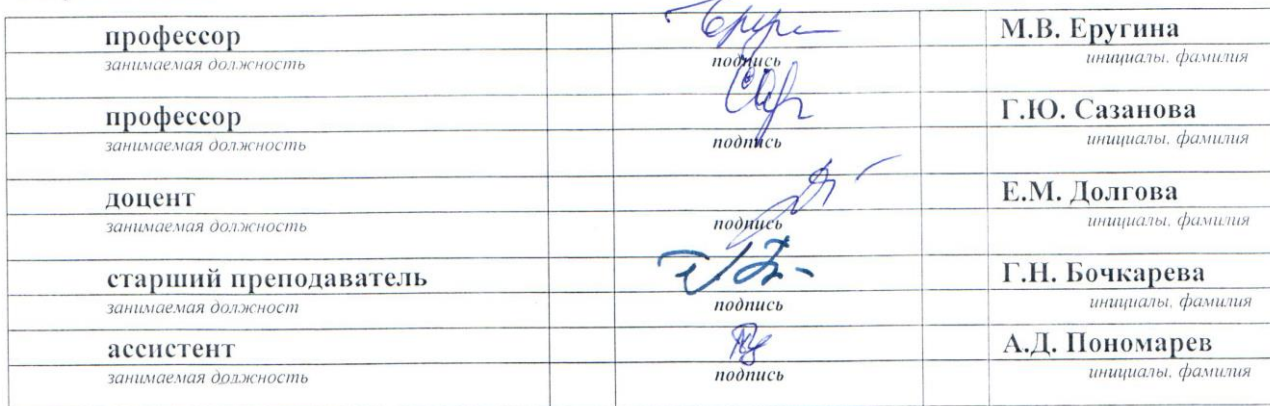 профессор М.В. Еругина
занимаемая должность подпись инициалы, фамилия
профессор Г.Ю. Сазанова
занимаемая должность подпись инициалы, фамилия
доцент Е.М. Долгова
занимаемая должность подпись инициалы, фамилия
старший преподаватель Г.Н. Бочкарева
занимаемая должност подпись инициалы, фамилия
ассистент А.Д. Пономарев
занимаемая должность подпись инициалы, фамилия